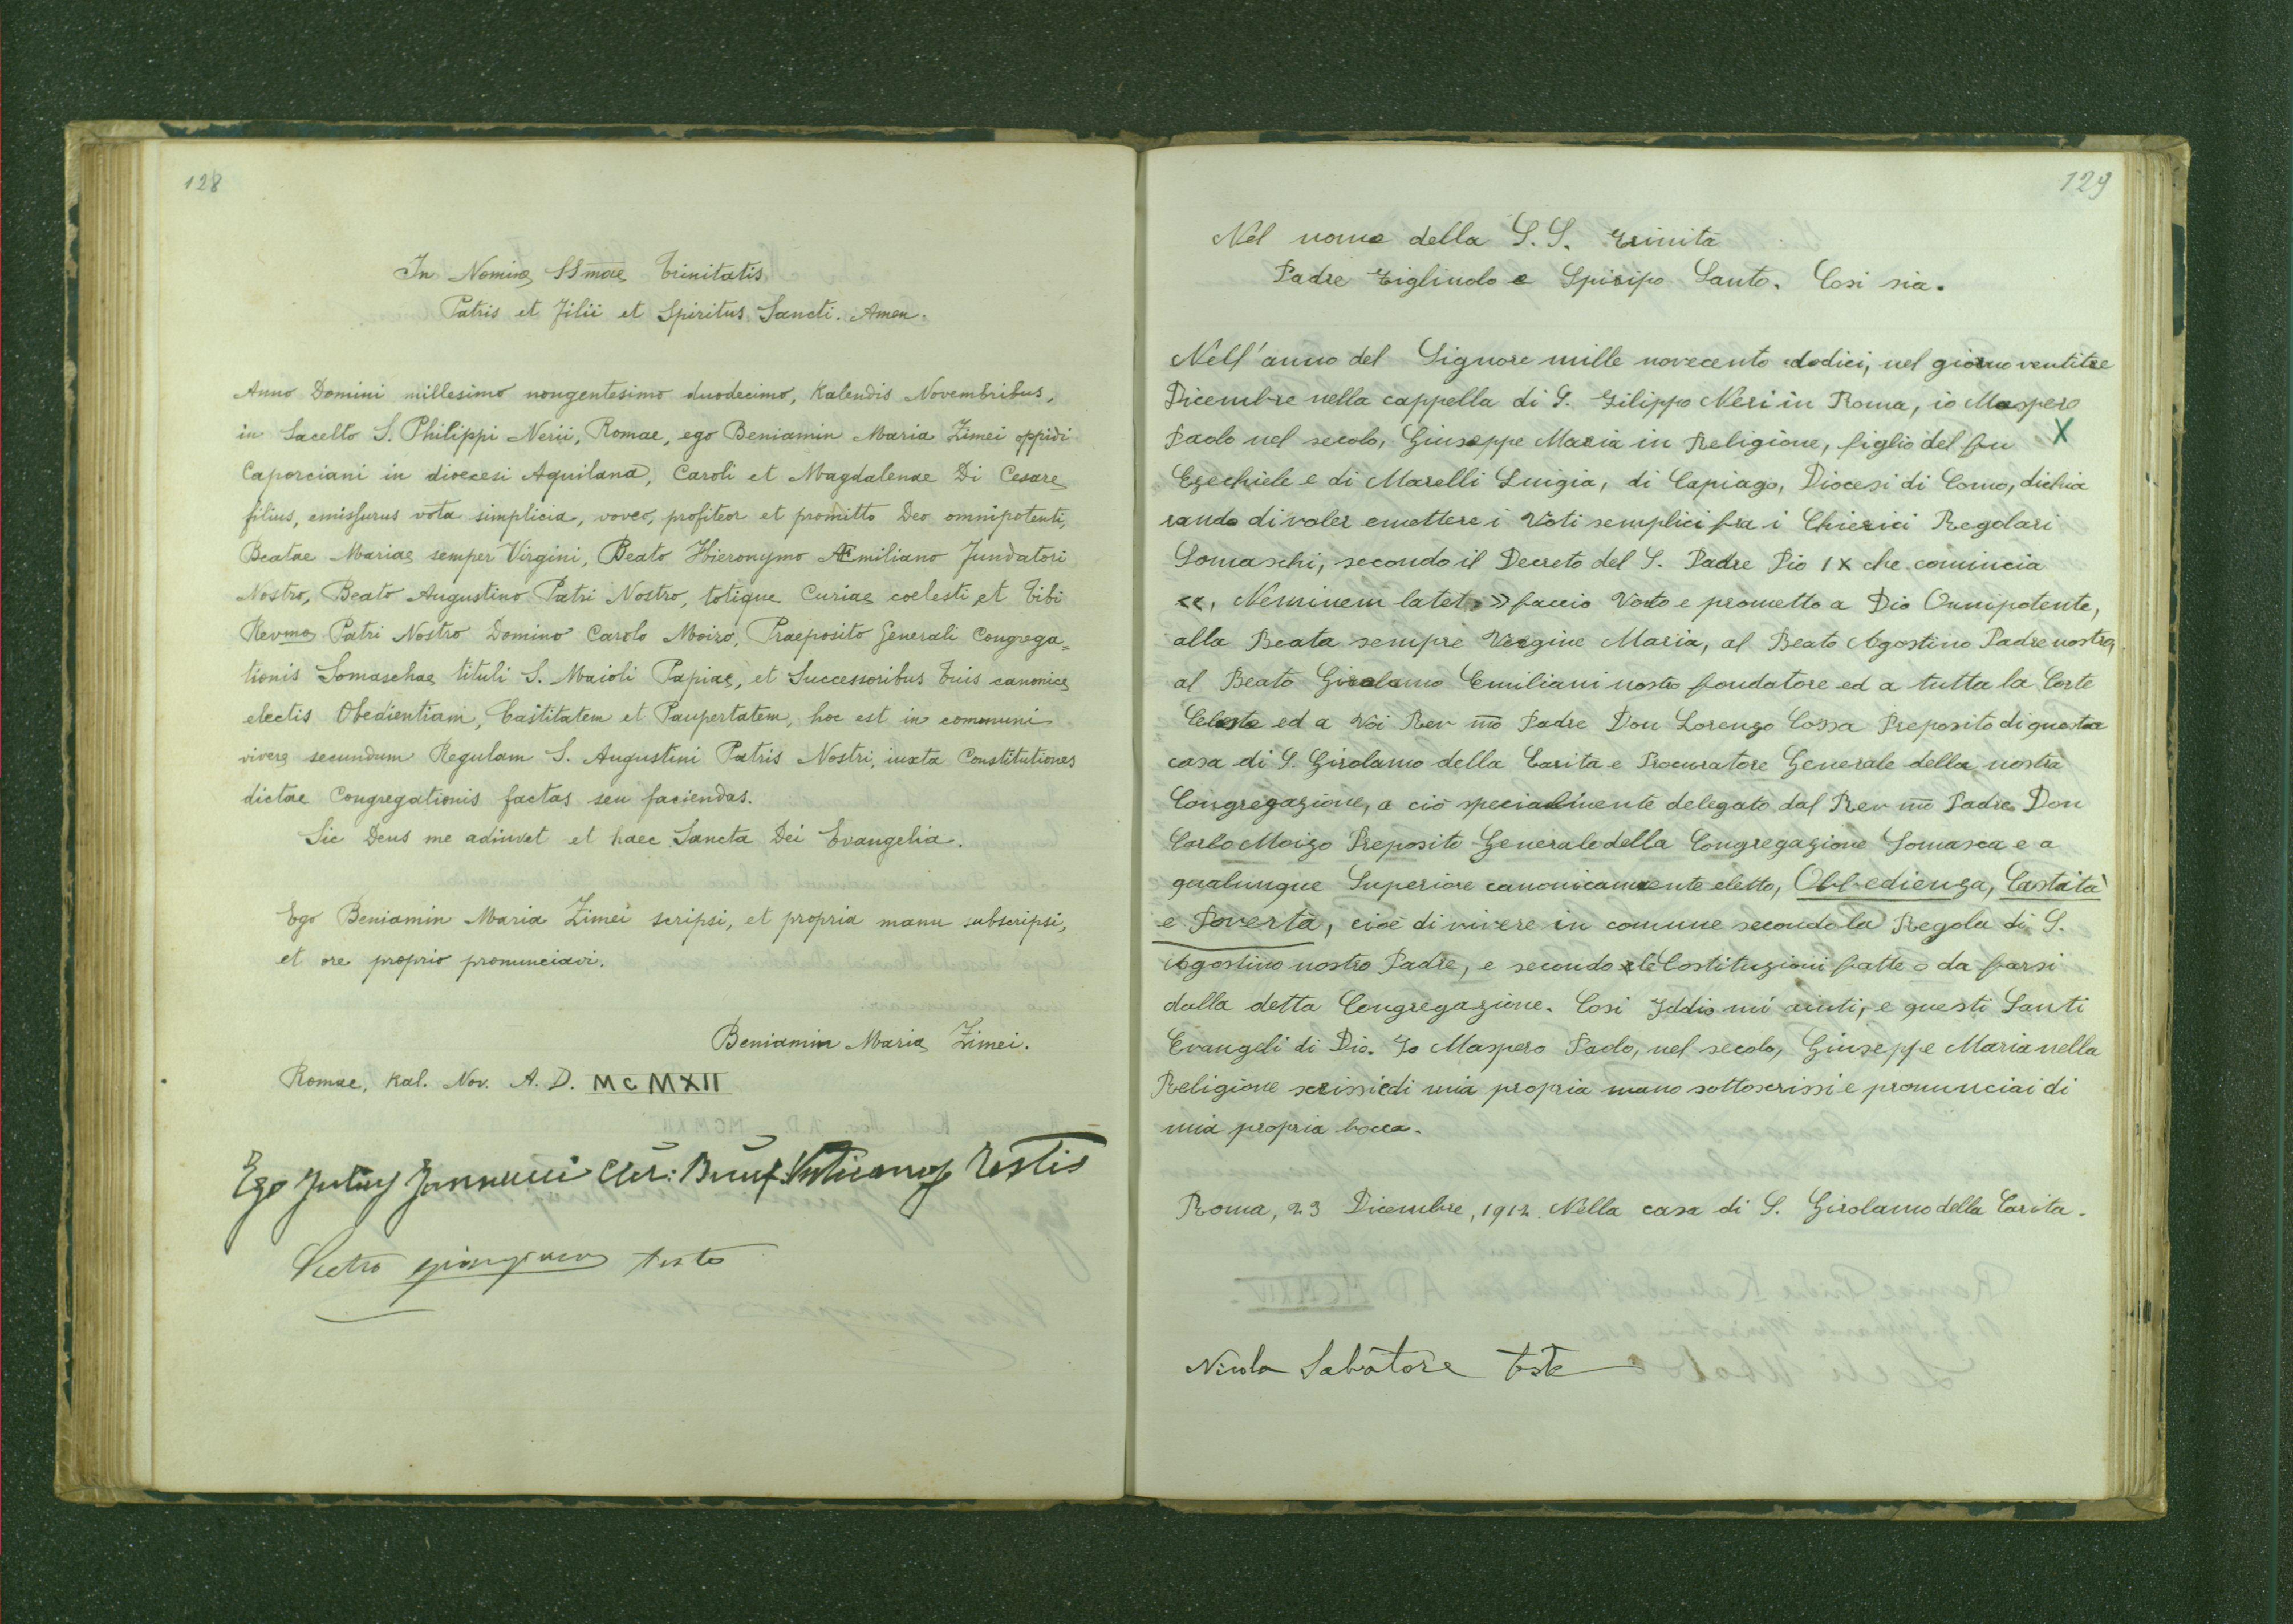 128
In Nomine SSmae Trinitatis
Patris et Filii et Spiritus Sancti. Amen.
Anno Domini millesimo nongentesimo duodecimo, Kalendis Novembribus,
in Sacello S. Philippi Nerii, Romae, ego Beniamin Maria Zimei oppidi
Caporciani in dioecesi Aquilana, Caroli et Magdalenae Di Cesare
filius, emissurus vota simplicia, voveo, profiteor et promitto Deo omnipotenti,
Beatae Mariae semper Virgini, Beato Hieronymo Æmiliano Fundatori
Nostro, Beato Augustino Patri Nostro, totique Curiae coelesti et Tibi
Revmo Patri Nostro Domino Carolo Moizo, Praeposito Generali Congrega=
tionis Somaschae tituli S. Maioli Papiae, et Successoribus Tuis canonice
electis Obedientiam, Castitatem et Paupertatem, hoc est in communi
vivere secundum Regulam S. Augustini Patris Nostri, iuxta Constitutiones
dictae Congregationis factas seu faciendas.
Sic Deus me adiuvet et haec Sancta Dei Evangelia.
Ego Beniamin Maria Zimei scripsi, et propria manu subscripsi,
et ore proprio pronunciavi.
Beniamin Maria Zimei.
Romae, Kal. Nov. A. D. MCMXII
Ego Testis
Pietro teste
129
Nel nome della S.S. Trinità
Padre Figliuolo e Spirito Santo. Cosi sia.
Nell'anno del Signore mille novecento dodici, nel giorno ventitre
Dicembre nella cappella di S. Filippo Neri in Roma, io Maspero
Paolo nel secolo, Giuseppe Maria in Religione, figlio del fu X
Ezechiele e di Marelli Luigia, di Capiago, Diocesi di Como, dichia
rando di voler emettere i Voti semplici fra i Chierici Regolari
Somaschi, secondo il Decreto del S. Padre Pio IX che comincia
<<, Neminem latet, >> faccio Voto e prometto a Dio Onnipotente,
alla Beata sempre Vergine Maria, al Beato Agostino Padre nostro,
al Beato Girolamo Emiliani nostro fondatore ed a tutta la Corte
Celeste ed a Voi Rev mo Padre Don Lorenzo Cossa Preposito di questa
casa di S. Girolamo della Carità e Procuratore Generale della nostra
Congregazione, a ciò specialmente delegato dal Rev mo Padre Don
Carlo Moizo Preposito Generale della Congregazione Somasca e a
qualunque Superiore canonicamente eletto, Obbedienza, Castità
e Povertà, cioè di vivere in comune secondo la Regola di S.
Agostino nostro Padre, e secondo le Costituzioni fatte o da farsi
dalla detta Congregazione. Cosi Iddio mi aiuti, e questi Santi
Evangeli di Dio. Io Maspero Paolo, nel secolo, Giuseppe Maria nella
Religione scrissi e di mia propria mano sottoscrissi e pronunciai di
mia propria bocca.
Roma, 23 Dicembre, 1912. Nella casa di S. Girolamo della Carita.
Nicola Salvatore teste